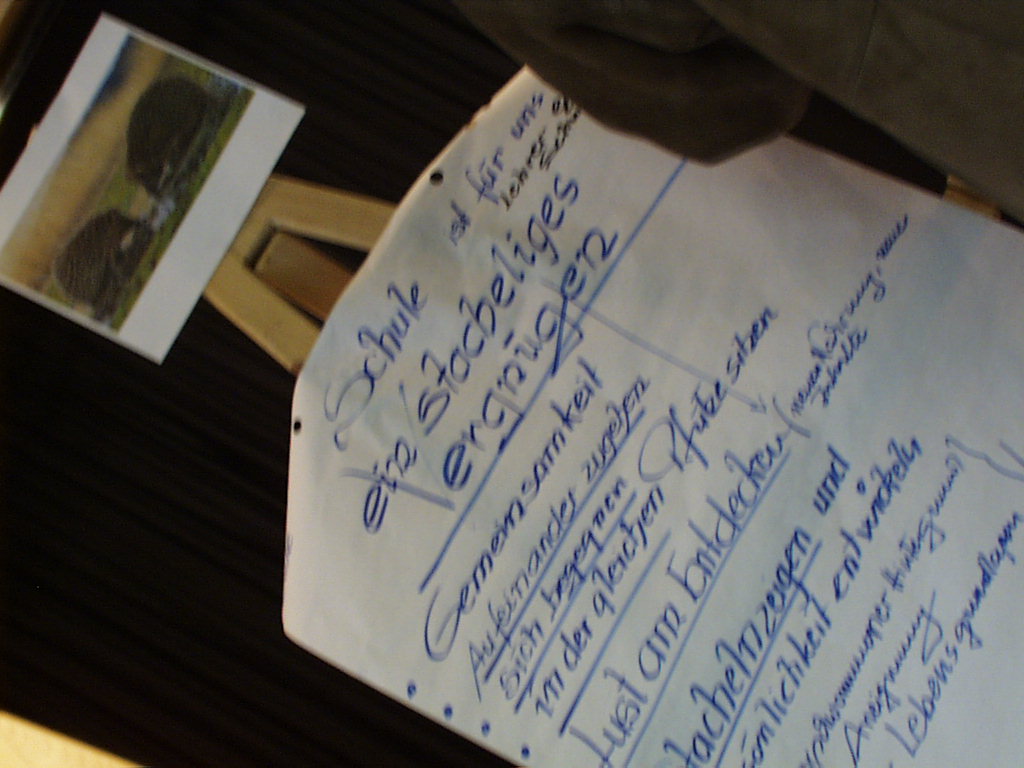 Schule
ist für uns
Lehrer
ein stacheliges
ergnügen
Gemeinsamkeit
Aufeinander zugehen
sich begegnen
in der gleichen Pfütze sitzen
Lust am Entdecken
(neue Nahrung, neue
Inhalte
tacheln zeigen und
sönlichkeit entwickeln
Hintergrund)
Aneignung
Lebensgrundlagen